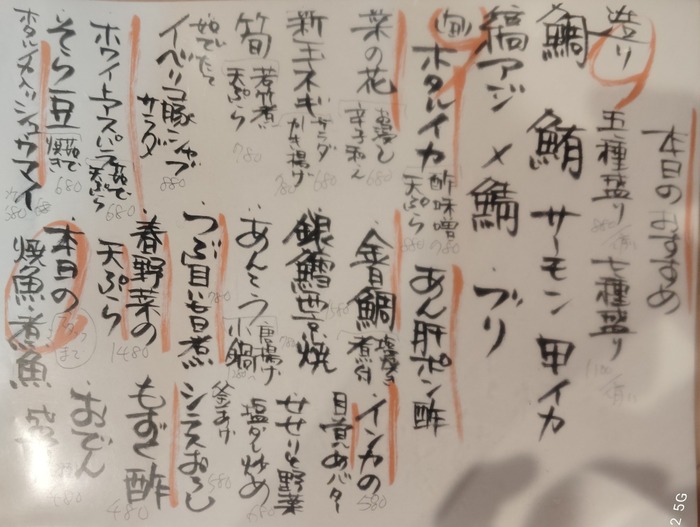 本日のおすすめ
造り 五種盛り 七種盛り
鯛 鮪 サーモン 甲イカ
縞アジ 〆鯖 ブリ
旬 ホタルイカ 酢味噌 天ぷら
あん肝ポン酢
菜の花 お浸し 辛子和え 680
金目鯛 塩焼き 煮付
インカの目覚めバター 580
新玉ネギ サラダ 680 かき揚げ 780
銀鱈西京焼
せせりと野菜塩ダレ炒め
筍 若竹煮 天ぷら 780
あんこう 唐揚げ 小鍋
釜あげシラスおろし 580
茹でたて
イベリコ豚シャブサラダ 880
つぶ貝旨煮 780
もずく酢 480
ホワイトアスパラ 茹で 天ぷら 680
春野菜の天ぷら 1480
おでん
そら豆 茹で 焼き 680
本日の焼魚煮魚
ホタルイカ入りシュウマイ 580